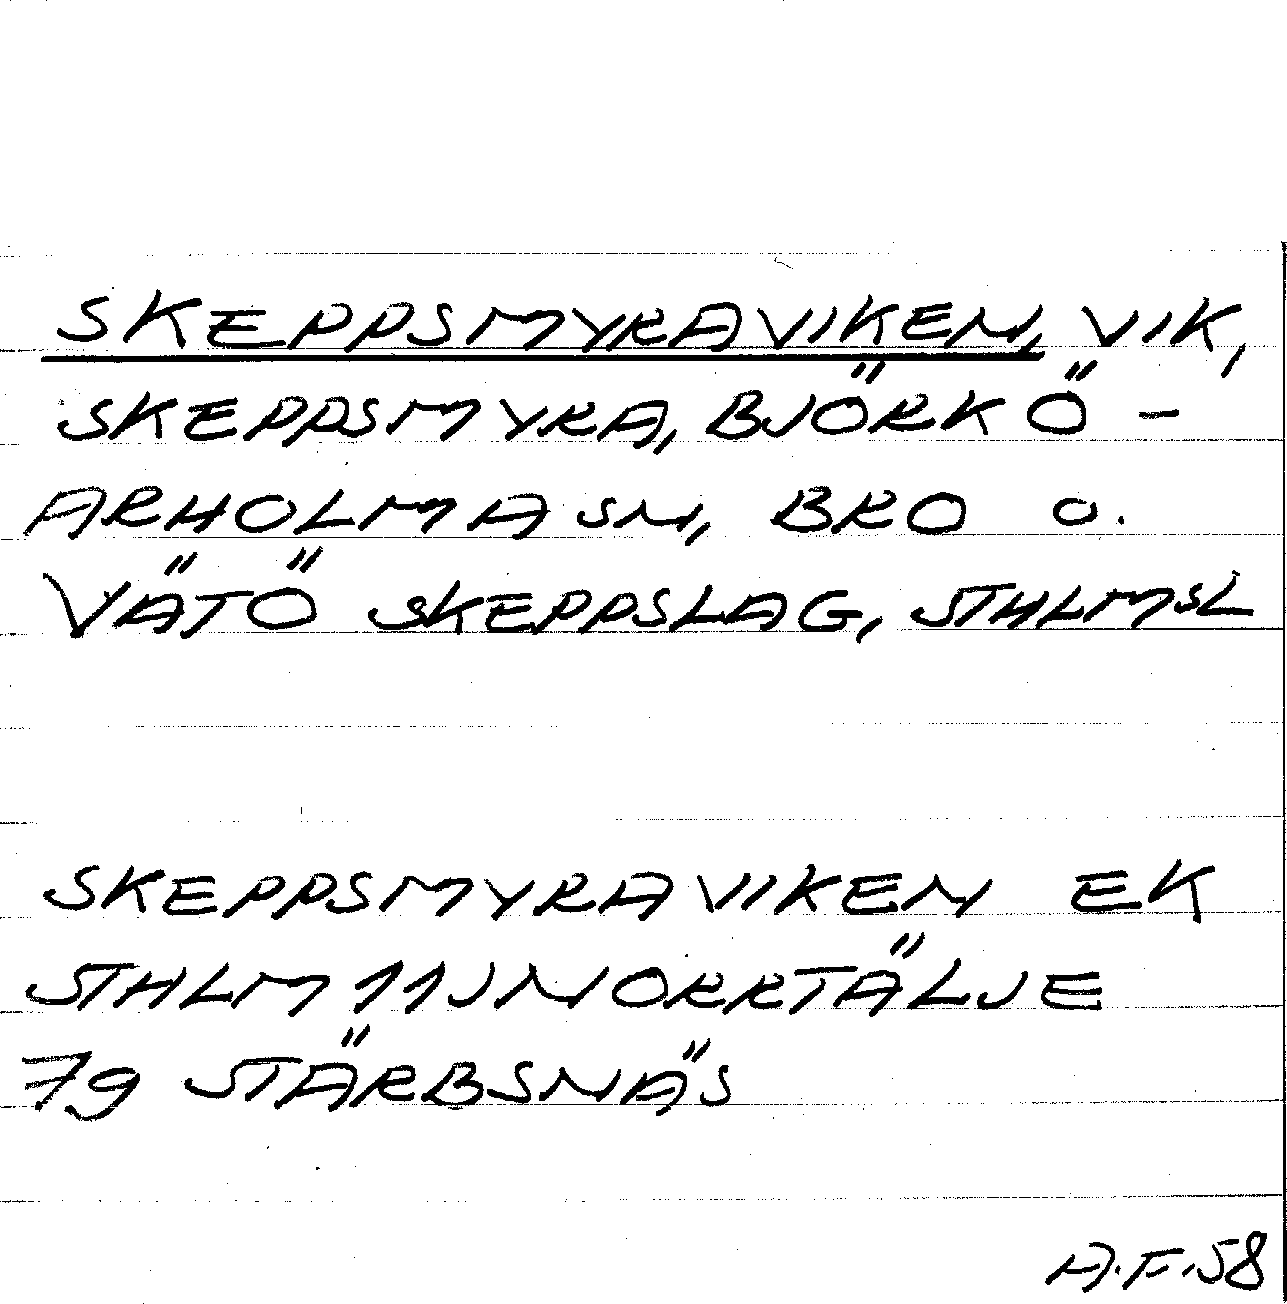 SKEPPSMYRAVIKEN, VIK,
SKEPPSMYRA, BJÖRKÖ -
ARHOLMA SN, BRO O.
VÄTÖ SKEPPSLAG, STHLMSL
SKEPPSMYRAVIKEN EK
STHLM 11J NORRTÄLJE
79 STÄRBSNÄS
A.F.58